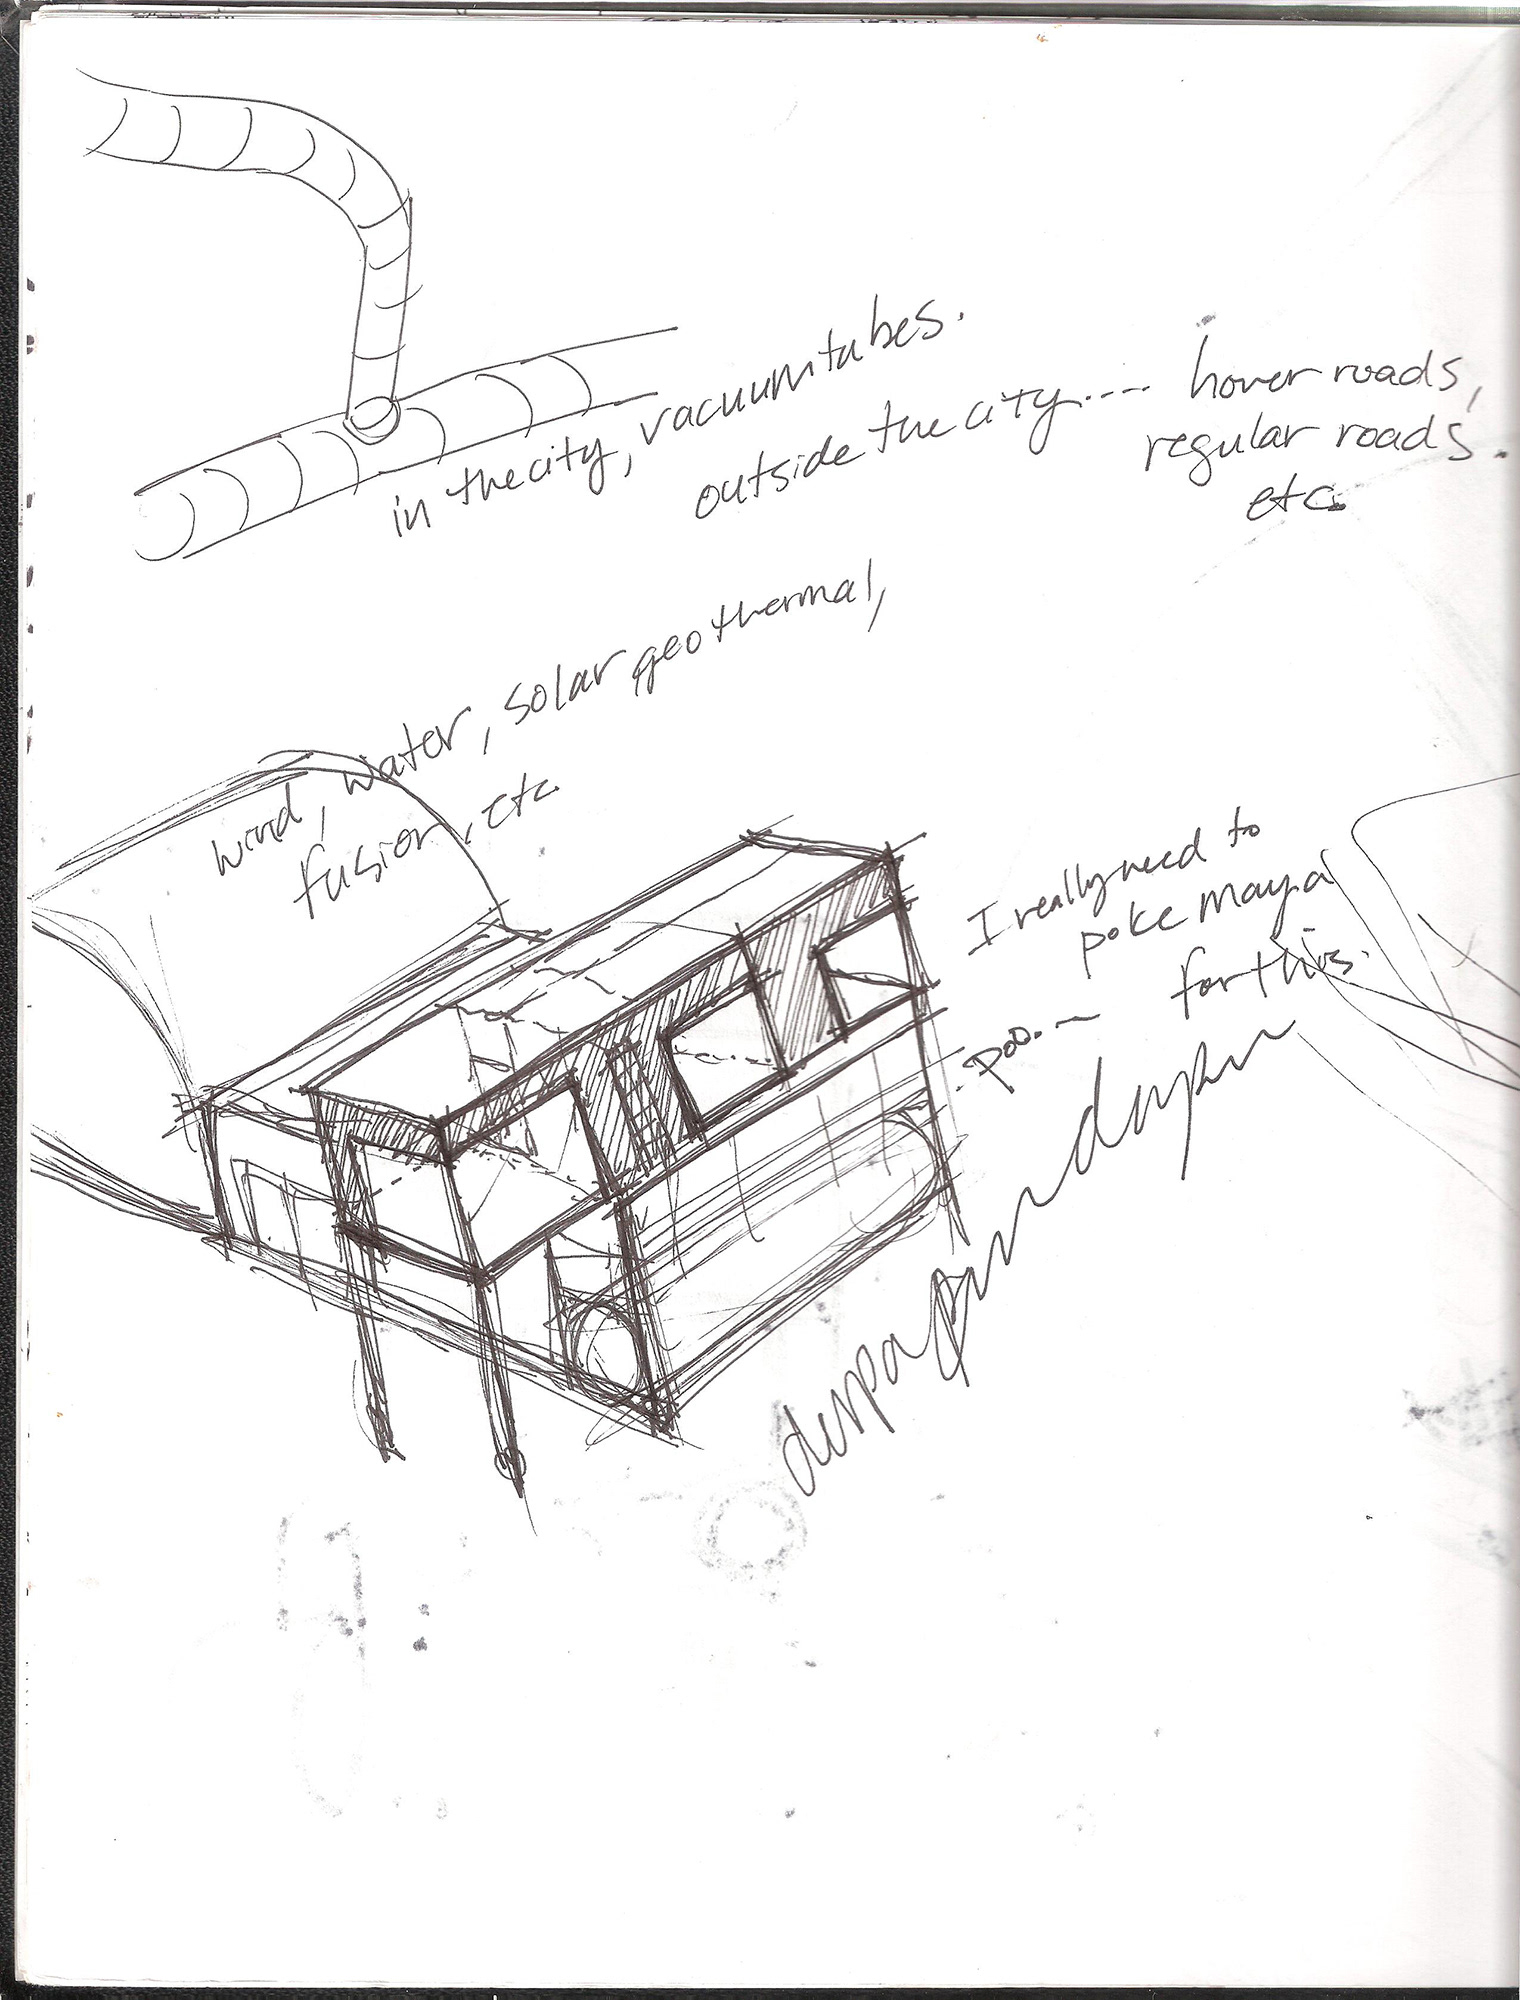 in the city, vacuum tubes.
outside the city.... hover roads,
regular roads.
etc.
wind, water, solar geothermal,
fusion, etc.
I really need to
poke Maya
for this.